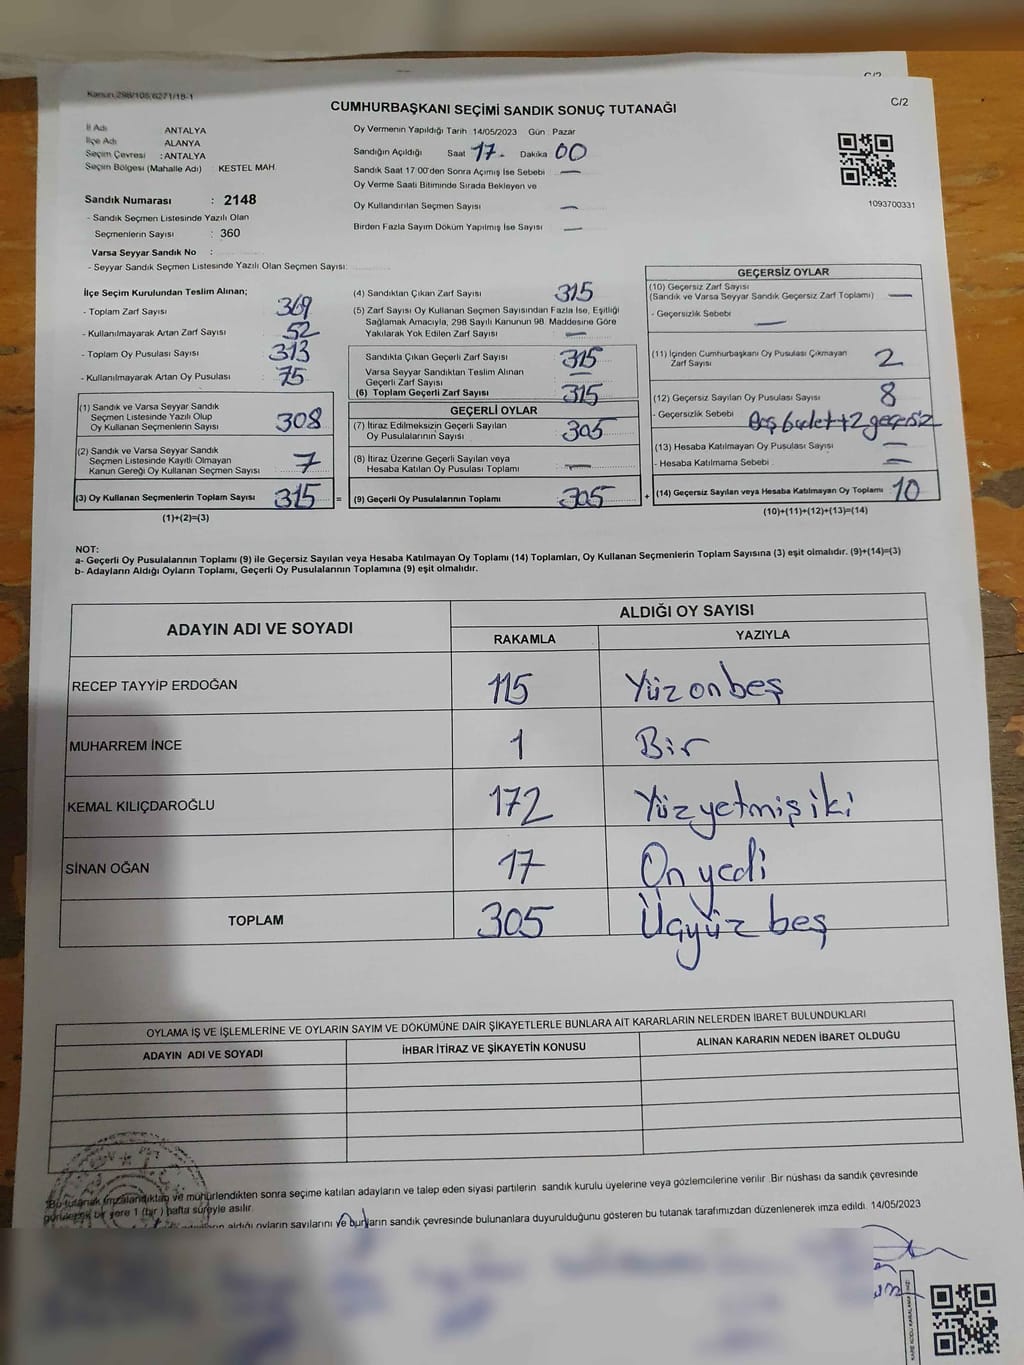 Kanun 298/105,6271/18-1
C/2
C/2
CUMHURBAŞKANI SEÇİMİ SANDIK SONUÇ TUTANAĞI
İl Adı ANTALYA
İlçe Adı ALANYA
Seçim Çevresi : ANTALYA
Seçim Bölgesi (Mahalle Adı) KESTEL MAH.
Sandık Numarası : 2148
- Sandık Seçmen Listesinde Yazılı Olan
Seçmenlerin Sayısı : 360
Varsa Seyyar Sandık No :
- Seyyar Sandık Seçmen Listesinde Yazılı Olan Seçmen Sayısı:
Oy Vermenin Yapıldığı Tarih 14/05/2023 Gün : Pazar
Sandığın Açıldığı Saat 17 Dakika 00
Sandık Saat 17 00'den Sonra Açımış İse Sebebi —
Oy Verme Saati Bitiminde Sırada Bekleyen ve
Oy Kullandırılan Seçmen Sayısı —
Birden Fazla Sayım Döküm Yapılmış İse Sayısı —
1093700331
İlçe Seçim Kurulundan Teslim Alınan;
- Toplam Zarf Sayısı : 369
- Kullanılmayarak Artan Zarf Sayısı : 52
- Toplam Oy Pusulası Sayısı : 313
- Kullanılmayarak Artan Oy Pusulası : 75
(1) Sandık ve Varsa Seyyar Sandık
Seçmen Listesinde Yazılı Olup
Oy Kullanan Seçmenlerin Sayısı : 308
(2) Sandık ve Varsa Seyyar Sandık
Seçmen Listesinde Kayıtlı Olmayan
Kanun Gereği Oy Kullanan Seçmen Sayısı : 7
(3) Oy Kullanan Seçmenlerin Toplam Sayısı : 315 =
(1)+(2)=(3)
(4) Sandıktan Çıkan Zarf Sayısı 315
(5) Zarf Sayısı Oy Kullanan Seçmen Sayısından Fazla İse, Eşitliği
Sağlamak Amacıyla, 298 Sayılı Kanunun 98. Maddesine Göre
Yakılarak Yok Edilen Zarf Sayısı —
Sandıkta Çıkan Geçerli Zarf Sayısı 315
Varsa Seyyar Sandıktan Teslim Alınan
Geçerli Zarf Sayısı —
(6) Toplam Geçerli Zarf Sayısı 315
GEÇERLİ OYLAR
(7) İtiraz Edilmeksizin Geçerli Sayılan
Oy Pusulalarının Sayısı : 305
(8) İtiraz Üzerine Geçerli Sayılan veya
Hesaba Katılan Oy Pusulası Toplamı : —
(9) Geçerli Oy Pusulalarının Toplamı : 305 +
GEÇERSİZ OYLAR
(10) Geçersiz Zarf Sayısı
(Sandık ve Varsa Seyyar Sandık Geçersiz Zarf Toplamı) —
- Geçersizlik Sebebi : —
(11) İçinden Cumhurbaşkanı Oy Pusulası Çıkmayan
Zarf Sayısı : 2
(12) Geçersiz Sayılan Oy Pusulası Sayısı : 8
- Geçersizlik Sebebi Beş 6 adet+2 geçersiz
(13) Hesaba Katılmayan Oy Pusulası Sayısı —
- Hesaba Katılmama Sebebi : —
(14) Geçersiz Sayılan veya Hesaba Katılmayan Oy Toplamı : 10
(10)+(11)+(12)+(13)=(14)
NOT:
a- Geçerli Oy Pusulalarının Toplamı (9) ile Geçersiz Sayılan veya Hesaba Katılmayan Oy Toplamı (14) Toplamları, Oy Kullanan Seçmenlerin Toplam Sayısına (3) eşit olmalıdır. (9)+(14)=(3)
b- Adayların Aldığı Oyların Toplamı, Geçerli Oy Pusulalarının Toplamına (9) eşit olmalıdır.
ADAYIN ADI VE SOYADI
ALDIĞI OY SAYISI
RAKAMLA YAZIYLA
RECEP TAYYİP ERDOĞAN 115 Yüz onbeş
MUHARREM İNCE 1 Bir
KEMAL KILIÇDAROĞLU 172 Yüzyetmişiki
SİNAN OĞAN 17 On yedi
TOPLAM 305 Üçyüz beş
OYLAMA İŞ VE İŞLEMLERİNE VE OYLARIN SAYIM VE DÖKÜMÜNE DAİR ŞİKAYETLERLE BUNLARA AİT KARARLARIN NELERDEN İBARET BULUNDUKLARI
ADAYIN ADI VE SOYADI İHBAR İTİRAZ VE ŞİKAYETİN KONUSU ALINAN KARARIN NEDEN İBARET OLDUĞU
*Bu tutanak imzalandıktan ve mühürlendikten sonra seçime katılan adayların ve talep eden siyasi partilerin sandık kurulu üyelerine veya gözlemcilerine verilir. Bir nüshası da sandık çevresinde
görülecek bir yere 1 (bir) hafta süreyle asılır.
aldığı oyların sayılarını ve bunların sandık çevresinde bulunanlara duyurulduğunu gösteren bu tutanak tarafımızdan düzenlenerek imza edildi. 14/05/2023